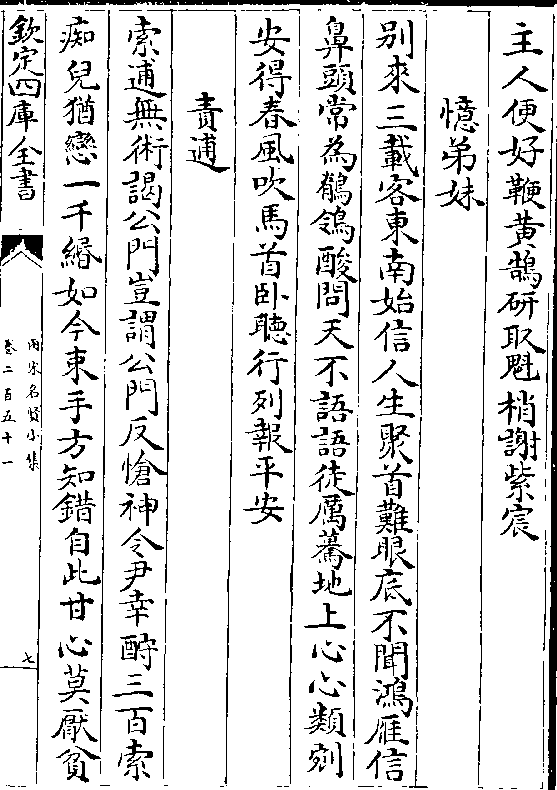 主人便好鞭黄鵠研取魁梢謝紫宸
憶弟妹
别來三載客東南始信人生聚首難眼底不聞鴻雁信
鼻頭常為鶺鴒酸問天不語語徒厲驀地上心心類剜
安得春風吹馬首卧聽行列報平安
責逋
索逋無術謁公門豈謂公門反愴神令尹幸酧三百索
痴兒猶戀一千緡如今束手方知錯自此甘心莫厭貧
欽定四庫全書
兩宋名賢小集
卷二百五十一
七